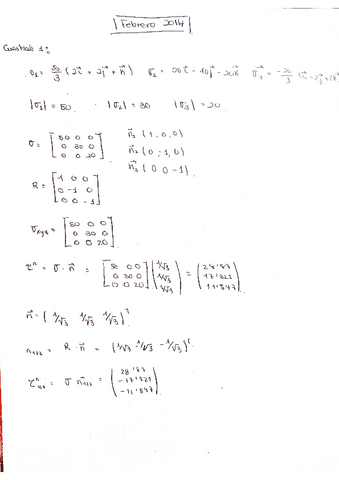 Febrero 2014
Cuestión 1:
σ₁ = 50/3 (2i⃗ + 2j⃗ + k⃗) σ₂ = 20i⃗ - 10j⃗ - 20k⃗ σ⃗₃ = -20/3
|σ₁| = 50. |σ₂| = 30 |σ₃| = 20.
σ = [50 0 0; 0 30 0; 0 0 20] n⃗₁ (1, 0, 0)
n⃗₂ (0, 1, 0)
n⃗₃ (0 0 -1)
R = [1 0 0; 0 -1 0; 0 0 -1]
σxyz = [50 0 0; 0 30 0; 0 0 20]
τⁿ = σ · n⃗ = [50 0 0; 0 30 0; 0 0 20] (1/√3; 1/√3; 1/√3) = (28'87; 17'321; 11'547)
n⃗ = (1/√3 1/√3 1/√3)ᵀ
n₁₂₃ = R · n⃗ = (1/√3 -1/√3 -1/√3)ᵗ
τⁿ₁₂₃ = σ n⃗₁₂₃ = (28'87; -17'321; -11'547)